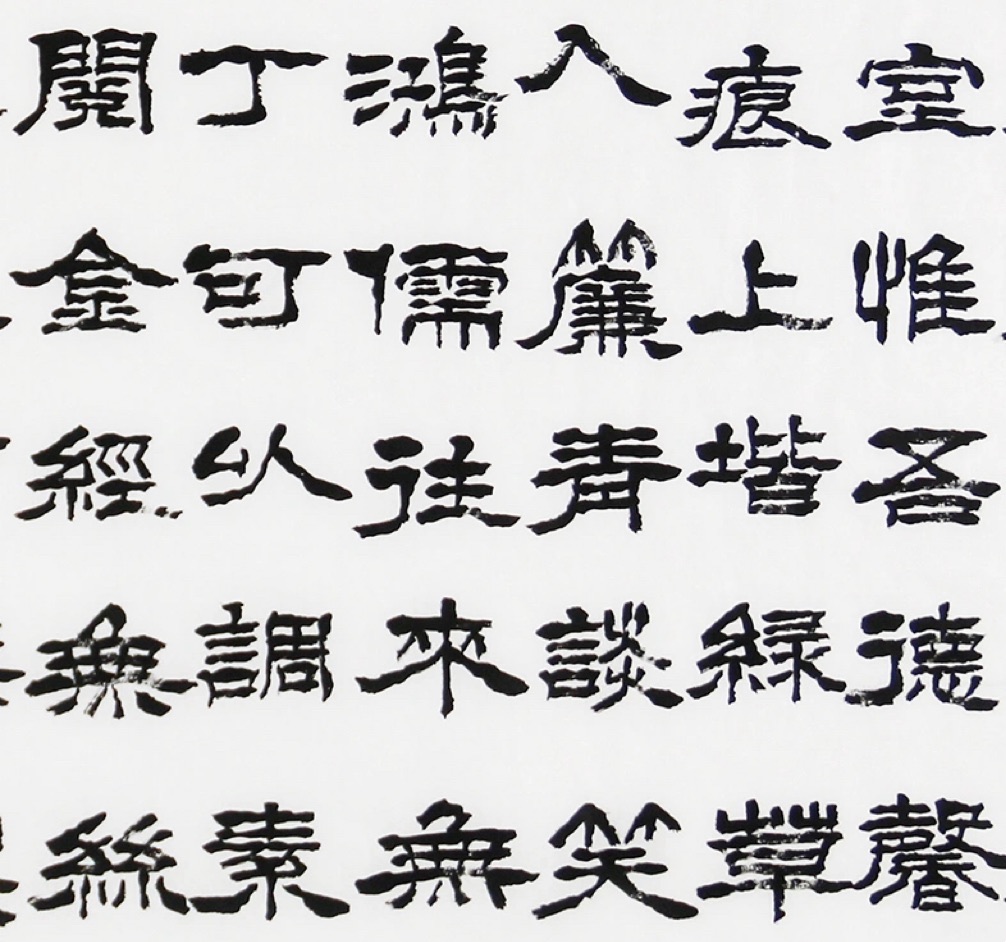 室惟吾德馨
痕上堦綠草
入簾青談笑
鴻儒往來無
丁可以調素
閱金經無絲